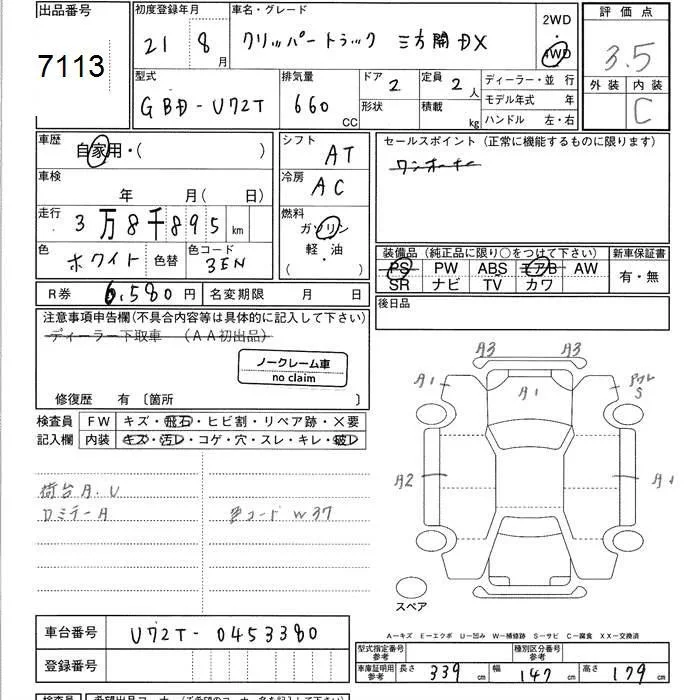 出品番号
7113
初度登録年月
21 8月
車名・グレード
クリッパートラック 三方開DX
2WD
4WD
評価点
3.5
外装 内装
C
型式
GBD-U72T
排気量
660 CC
ドア 2
形状
定員 2人
積載 kg
ディーラー・並行
モデル年式 年
ハンドル 左・右
車歴
自家用・( )
車検
年 月(日)
走行
3万8千895km
色
ホワイト 色替
色コード
3EN
シフト
AT
冷房
AC
燃料
ガソリン
軽・油
( )
セールスポイント (正常に機能するものに限ります)
ワンオーナー
装備品 (純正品に限り○をつけて下さい)
PS PW ABS エアB AW
SR ナビ TV カワ
新車保証書
有・無
後日品
R券 6,580円
名変期限 月 日
注意事項申告欄(不具合内容等は具体的に記入して下さい)
ディーラー下取車 (AA初出品)
ノークレーム車
no claim
修復歴 有〔箇所 〕
検査員
記入欄
FW キズ・飛石・ヒビ割・リペア跡・×要
内装 キズ・汚レ・コゲ・穴・スレ・キレ・破レ
荷台A.U
DミラーA
色コード W37
A3 A3
A1 A1
S
A2 A1
スペア
A-キズ E-エクボ U-凹み W-補修跡 S-サビ C-腐食 XX-交換済
車台番号 U72T-0453380
登録番号
型式指定番号
参考
種別区分番号
参考
車庫証明用
参考
長さ 339cm 幅 147cm 高さ 179cm